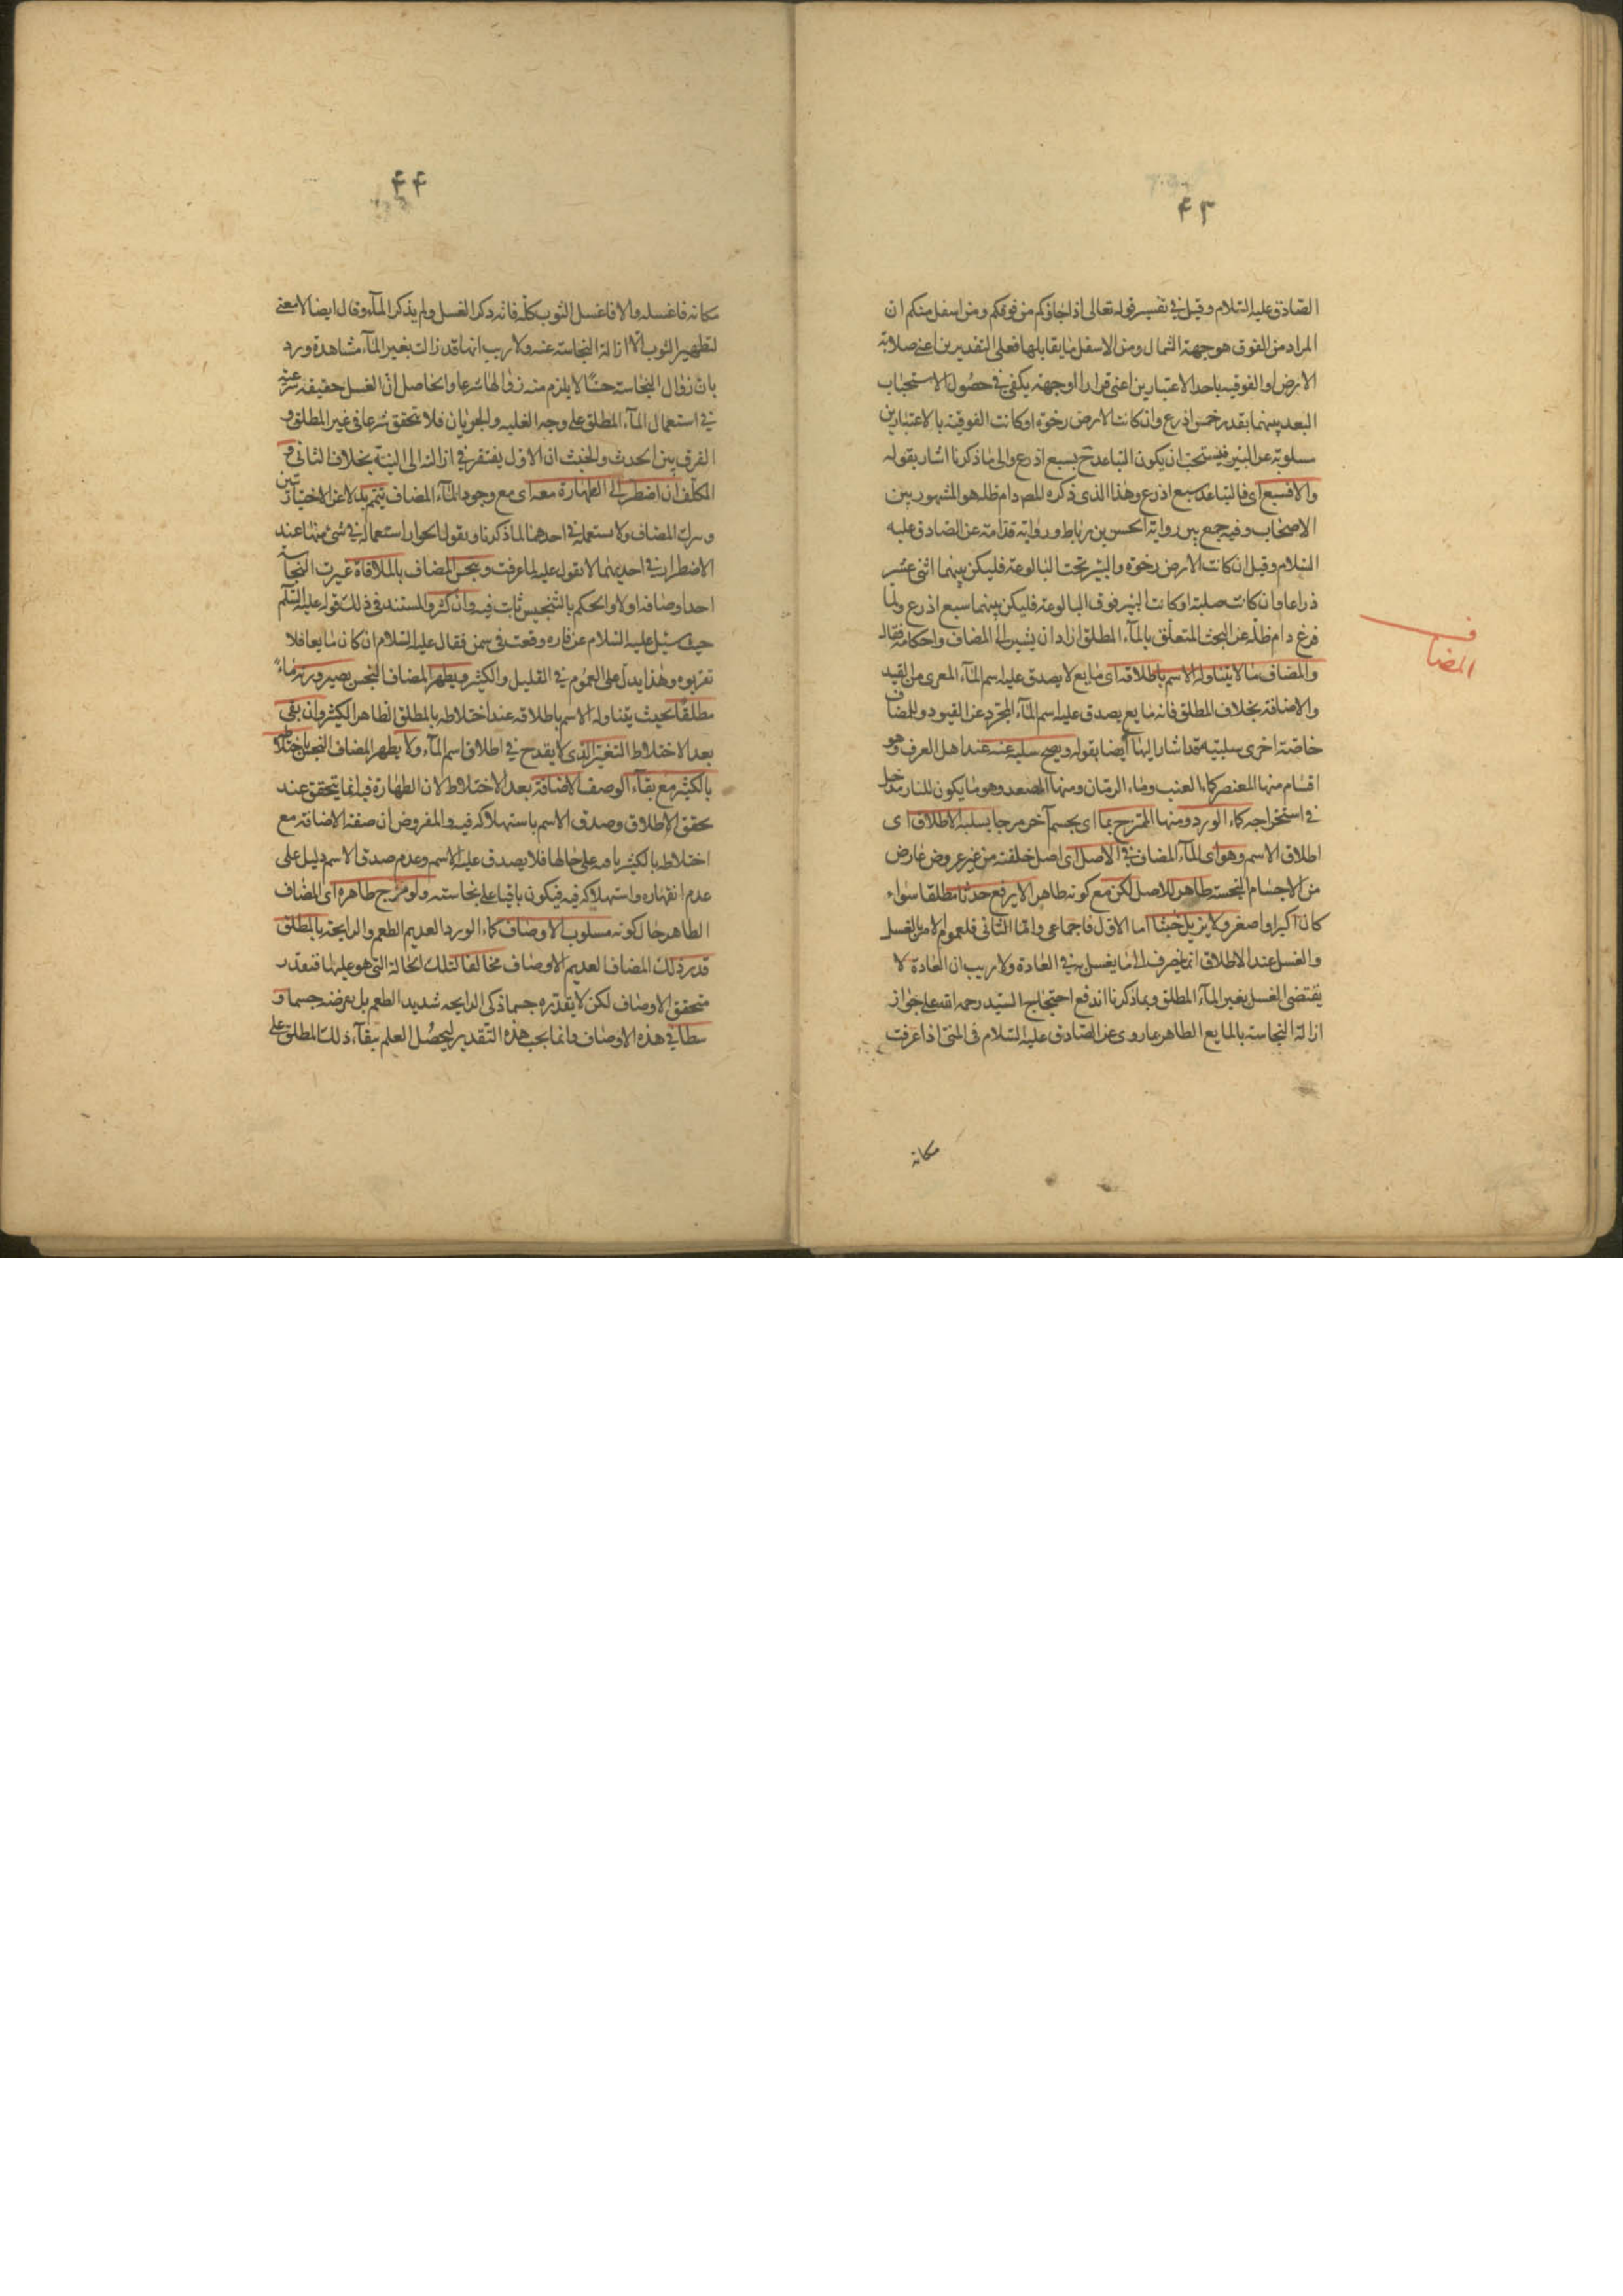 ۴۳
الصادق عليه السلام وقيل في تفسير قوله تعالى اذ جاؤكم من فوقكم ومن اسفل منكم ان
المراد من الفوق هو جهة الشمال ومن الاسفل ما يقابلها فعلى التقديرين اعنى صلابة
الارض او الفوقيه باحد الاعتبارين اعنى قرارا او جهته يكفى في حصول الاستحباب
البعد بينهما بقدر خمس اذرع وان كانت الارض رخوة او كانت الفوقية بالاعتبارين
مسلوبة عن البئر فيستحب ان يكون التباعد ح بسبع اذرع والى ما ذكرنا اشار بقوله
والا فسبع اى فالتباعد سبع اذرع وهذا الذى ذكره المص دام ظله هو المشهور بين
الاصحاب وفيه جمع بين رواية الحسن بن رباط ورواية قدامة عن الصادق عليه
السلام وقيل ان كانت الارض رخوة والبئر تحت البالوعة فليكن بينهما اثنى عشر
ذراعا وان كانت صلبة او كانت البئر فوق البالوعة فليكن بينهما سبع اذرع ولما
فرغ دام ظله عن البحث المتعلق بالمآء المطلق اراد ان يشير الى المضاف واحكامه فقال
المضاف
والمضاف ما لا يتناوله الاسم باطلاقه اى مايع لا يصدق عليه اسم المآء المعرى من القيد
والاضافة بخلاف المطلق فانه مايع يصدق عليه اسم المآء المجرد عن القيود وللمضاف
خاصة اخرى سلبيه قد اشار اليها ايضا بقوله ويصح سلبه عنه عند اهل العرف وهو
اقسام منها المعتصر كماء العنب وماء الرمان ومنها المصعد وهو ما يكون للنار مدخل
في استخراجه كماء الورد ومنها الممتزج بما اى بجسم آخر مرجا يسلبه الاطلاق اى
اطلاق الاسم وهو اى المآء المضاف في الاصل اى اصل خلقته من غير عروض عارض
من الاجسام النجسة طاهر للاصل لكن مع كونه طاهرا لا يرفع حدثا مطلقا سواء
كان اكبر او اصغر ولا يزيل خبثا اما الاول فاجماعى واما الثانى فلعموم الامر بالغسل
والغسل عند الاطلاق انما ينصرف الى ما يغسل به في العادة ولا ريب ان العادة لا
يقتضى الغسل بغير المآء المطلق وبما ذكرنا اندفع احتجاج السيد رحمه الله على جواز
ازالة النجاسة بالمايع الطاهر بما روى عن الصادق عليه السلام في المنى اذا عرفت
مكانه
۴۴
مكانه فاغسله والا فاغسل الثوب كله فانه ذكر الغسل ولم يذكر المآء وقال ايضا لا معنى
لتطهير الثوب الا ازالة النجاسة عنه ولا ريب انها قد زالت بغير المآء مشاهدة ورد
بان زوال النجاسة حسا لا يلزم منه زوالها شرعا والحاصل ان الغسل حقيقة شرعية
في استعمال المآء المطلق على وجه الغلبه والجريان فلا تحقق شرعا في غير المطلق و
الفرق بين الحدث والخبث ان الاول يفتقر في ازالته الى النية بخلاف الثانى و
المكلف ان اضطر الى الطهارة معه اى مع وجود المآء المضاف يتيمم بدلا عن الاختيارتين
ويترك المضاف ولا يستعمله في احدهما لما ذكرنا ويقول بجواز استعماله في شئ منها عند
الاضطرار في احديهما لا نقول عليه لما عرفت وينجس المضاف بالملاقاة غيرت النجاسة
احد اوصافه اولا والحكم بالتنجيس ثابت فيه وان كثر والمستند في ذلك قوله عليه السلم
حيث سئل عليه السلام عن فاره وقعت في سمن فقال عليه السلام ان كان مايعا فلا
تقربوه وهذا يدل على العموم في القليل والكثير ويطهر المضاف النجس بصيرورته ماء
مطلقا بحيث يتناوله الاسم باطلاقه عند اختلاطه بالمطلق الطاهر الكثير وان بقى
بعد الاختلاط التغير الذى لا يقدح في اطلاق اسم المآء ولا يطهر المضاف النجس باختلاطه
بالكثير مع بقآء الوصف الاضافة بعد الاختلاط لان الطهارة فيه انما يتحقق عند
تحقق الاطلاق وصدق الاسم باستهلاكه فيه والمفروض ان صفة الاضافة مع
اختلاطه بالكثير باقيه على حالها فلا يصدق عليه الاسم وعدم صدق الاسم دليل على
عدم انقهاره واستهلاكه فيه فيكون باقيا على نجاسته ولو مزج طاهره اى المضاف
الطاهر حال كونه مسلوب الاوصاف كماء الورد العديم الطعم والرايحة بالمطلق
قدر ذلك المضاف العديم الاوصاف مخالفا لتلك الحالة التى هو عليها فتقدر
متحقق الاوصاف لكن لا يقدره جسما ذكى الرايحه شديد الطعم بل نفرضه جسما و
سطا في هذه الاوصاف وانما يجب هذه التقدير ليحصل العلم ببقآء ذلك المطلق على